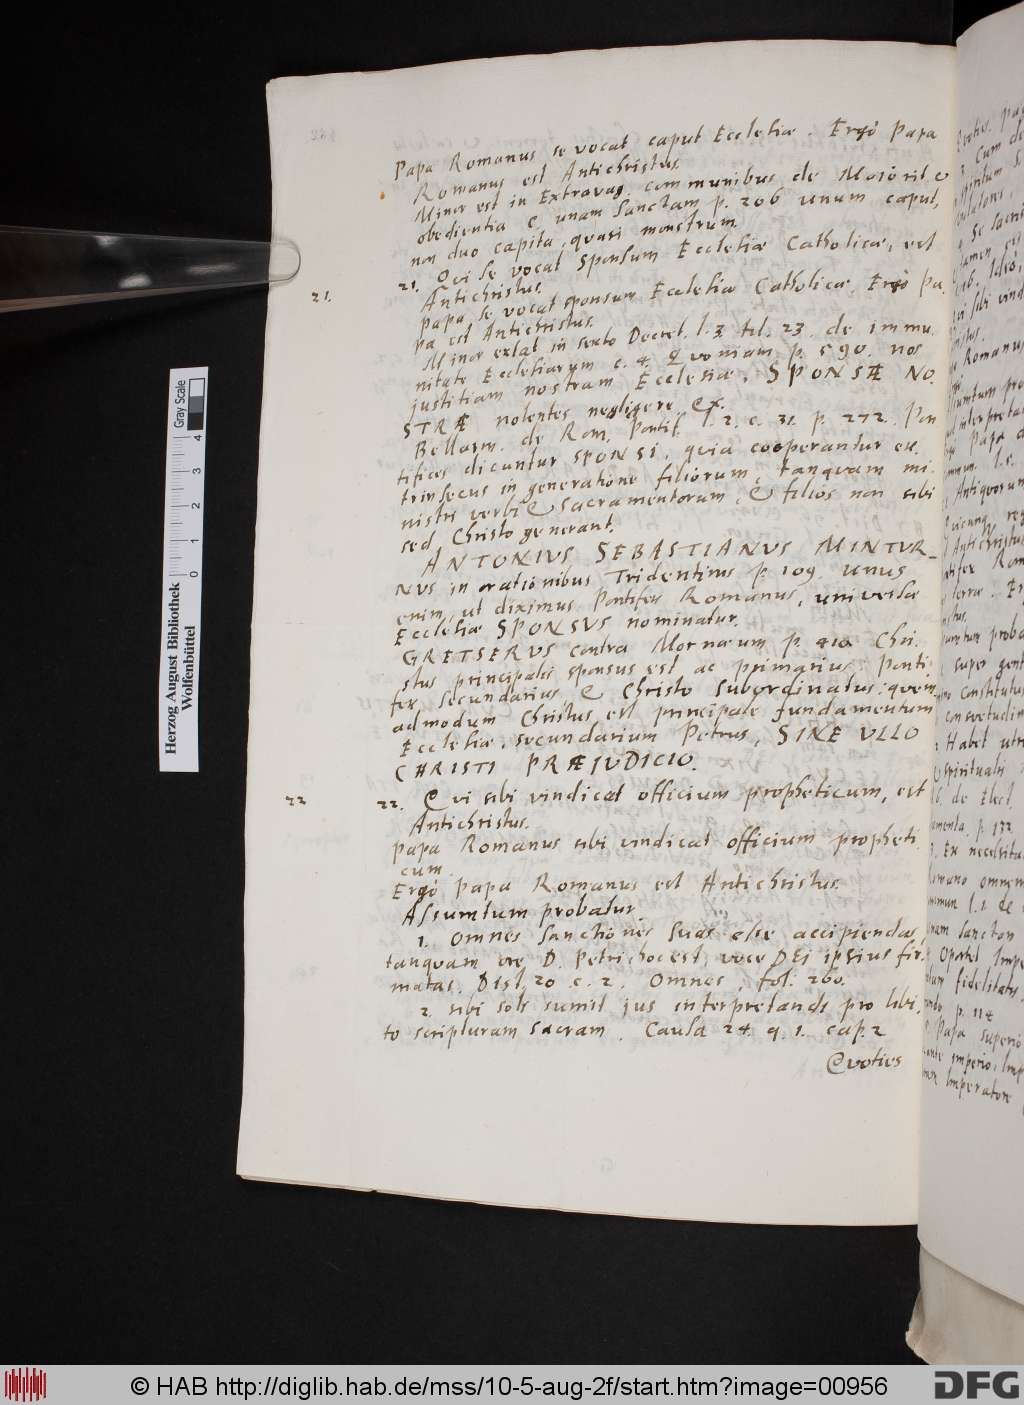 Papa Romanus se vocat caput Ecclesiæ. Ergò Papa
Romanus est Antichristus.
Minor est in Extravag. communibus de Majorit. &
obedientia c. unam Sanctam p. 206 unum caput,
non duo capita, quasi monstrum.
21.
21. Qui se vocat sponsum Ecclesiæ Catholicæ, est
Antichristus.
Papa se vocat sponsum Ecclesiæ Catholicæ, Ergò Pa.
pa est Antichristus.
Minor extat in sexto Decret. l. 3. tit. 23. de immu.
nitate Ecclesiarum c. 4. Quoniam p. 590. nos
justitiam nostram Ecclesiæ, SPONSÆ NO.
STRÆ nolentes negligere &.
Bellarm. de Rom. Pontif. l. 2. c. 31. p. 272. Pon
tifices dicuntur SPONSI, quia cooperantur ex.
trinsecus in generatione filiorum, tanquam mi.
nistri verbi & Sacramentorum, & filios non sibi
sed Christo generant.
ANTONIUS SEBASTIANUS MINTUR_
NUS in orationibus Tridentinis p. 109. unus
enim, ut diximus Pontifex Romanus, universæ
Ecclesiæ SPONSUS nominatur.
GRETSERUS contra Mornæum p. 410. Chri.
stus principalis sponsus est ac primarius: Ponti.
fex secundarius & Christo subordinatus: quem
admodum Christus est principale fundamentum
Ecclesiæ, secundarium Petrus, SINE ULLO
CHRISTI PRÆJUDICIO.
22
22. Qui sibi vindicat officium propheticum, est
Antichristus.
Papa Romanus sibi vindicat officium propheti
cum.
Ergò Papa Romanus est Antichristus.
Assumtum probatur
1. Omnes sanctiones suas esse accipiendas,
tanquam ore D. Petri, hoc est, voce DEI ipsius fir.
matas. Dist. 20. c. 2. Omnes, fol: 260.
2. sibi soli sumit jus interpretandi pro libi,
to scripturam sacram. Causa 24. q. 1. cap. 2
Quoties
Herzog August Bibliothek
Wolfenbüttel
0 1 2 3 4
Gray Scale
© HAB http://diglib.hab.de/mss/10-5-aug-2f/start.htm?image=00956
DFG